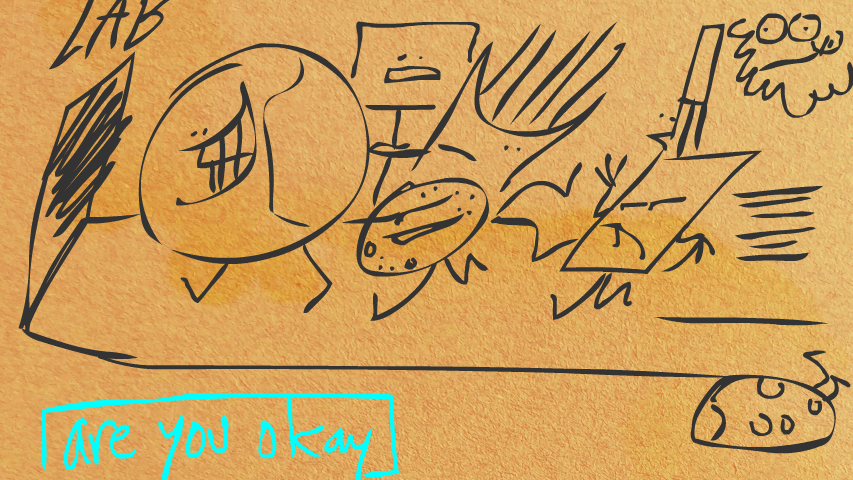 LAB
are you okay